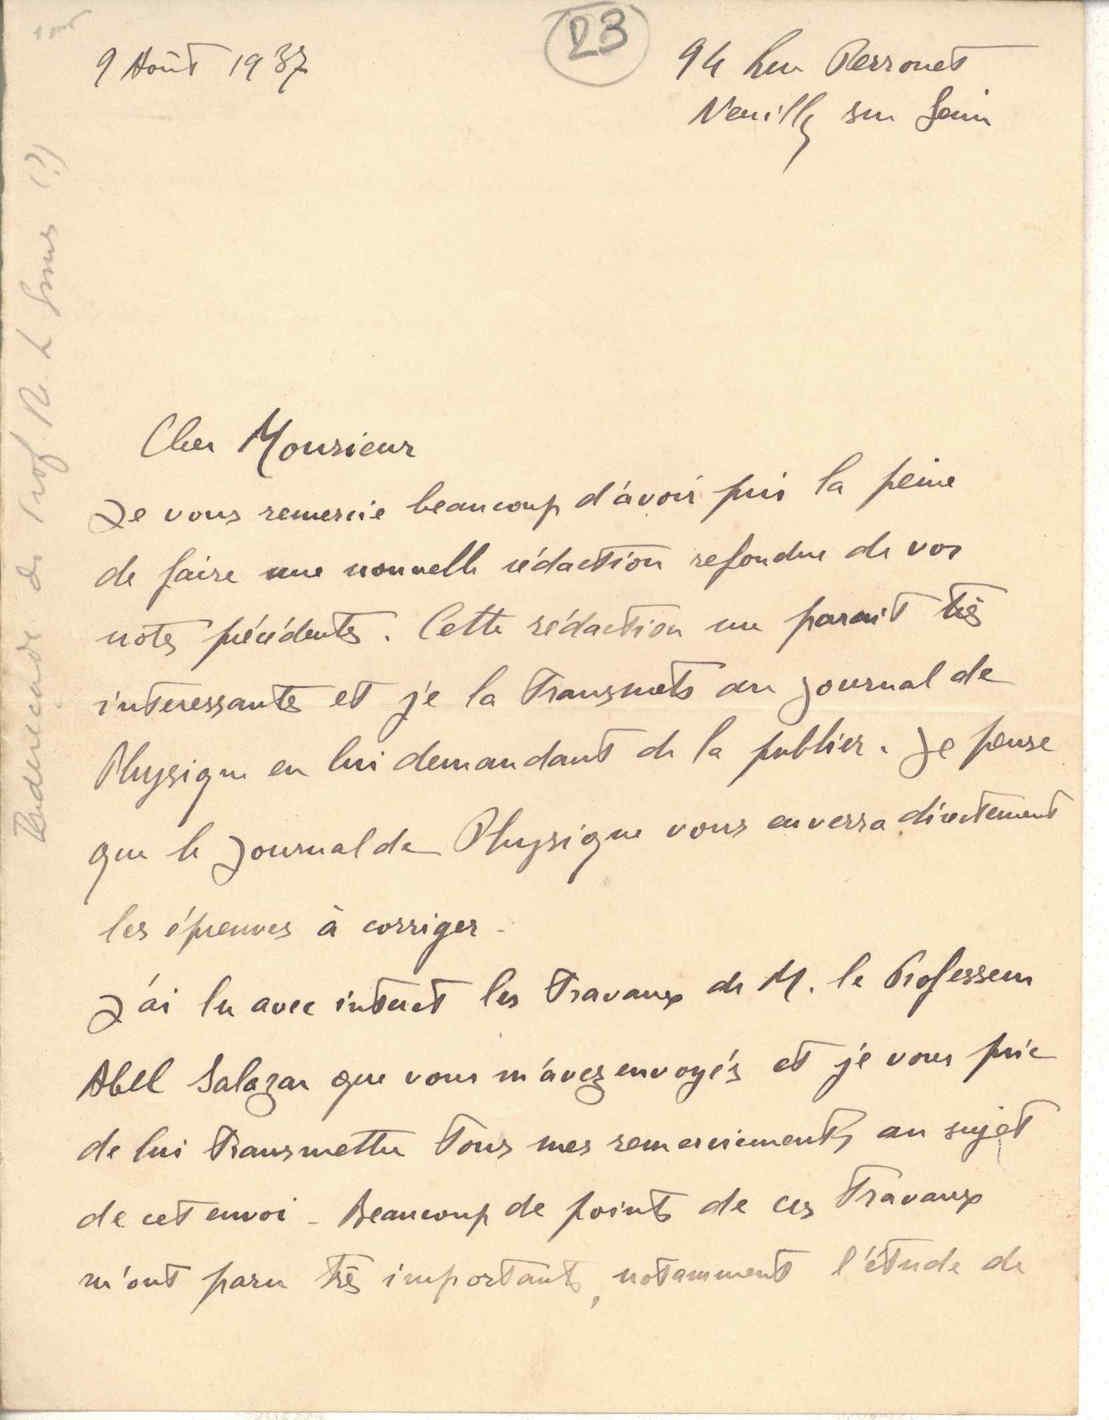 23
9 Août 1937
94 Rue Perronet
Neuilly sur Seine
Cher Monsieur
Je vous remercie beaucoup d'avoir pris la peine
de faire une nouvelle rédaction refondue de vos
notes précédentes. Cette rédaction me parait très
intéressante et je la transmets au Journal de
Physique en lui demandant de la publier. Je pense
que le Journal de Physique vous enverra directement
les épreuves à corriger -
J'ai lu avec interet les travaux de M. le Professeur
Abel Salazar que vous m'avez envoyés et je vous prie
de lui transmettre tous mes remerciements au sujet
de cet envoi - Beaucoup de points de ces travaux
m'ont paru très importants, notamment l'étude de
Prof.